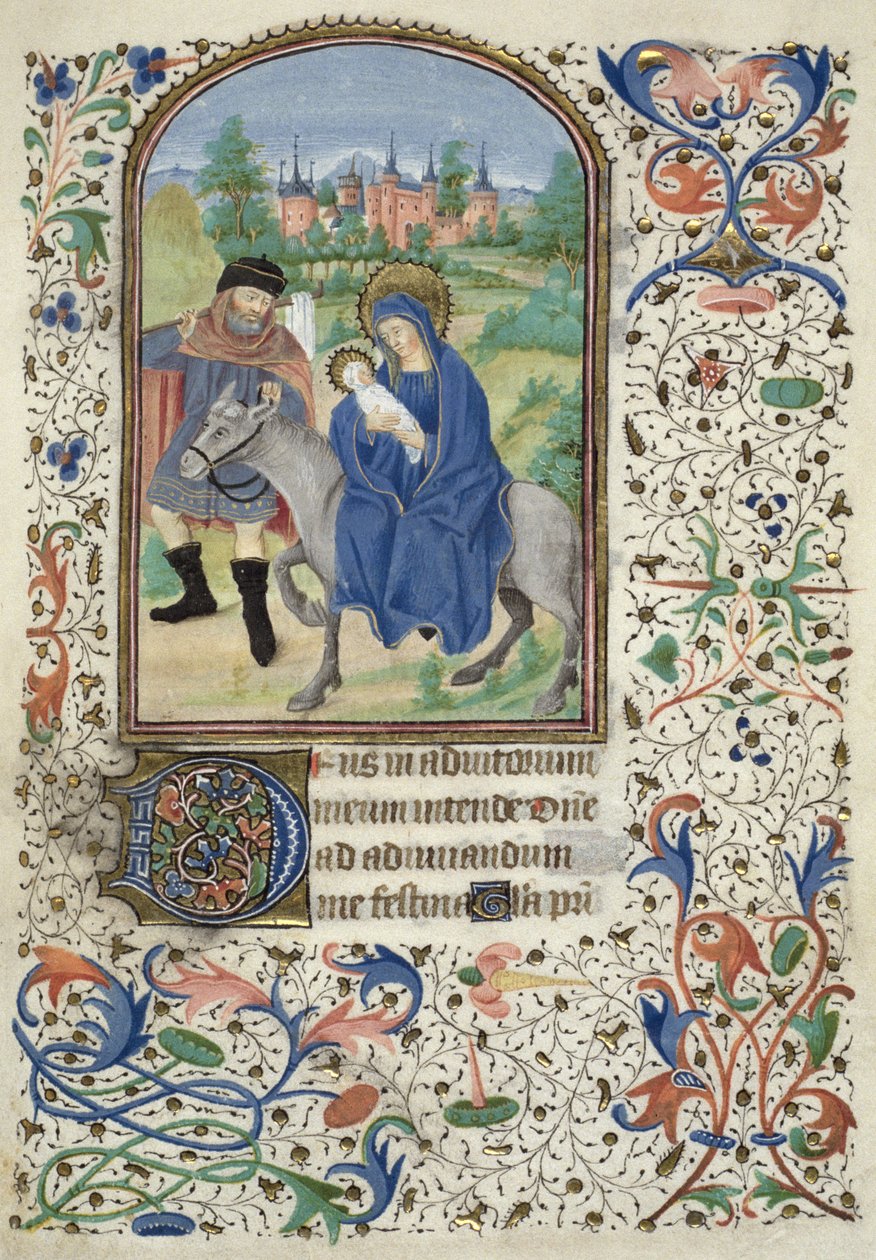 Deus in adiutorium
meum intende Dn̄e
ad adiuuandum
me festina Gl̄a pr̄i